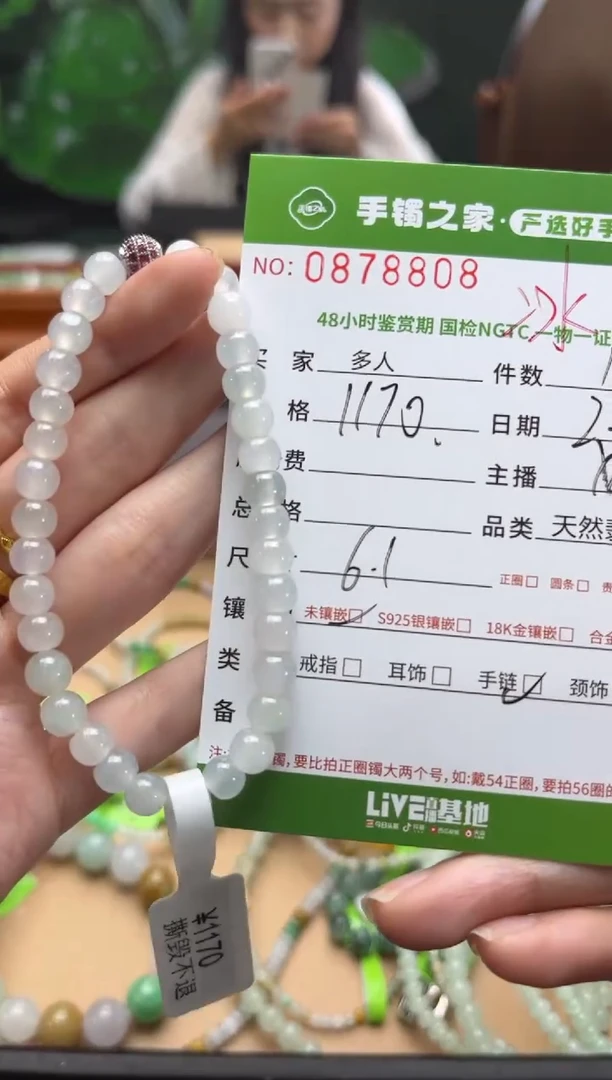 手镯之家·严选好手
NO: 0878808
冰
48小时鉴赏期 国检NGTC 一物一证
家 多人 件数
格 1170. 日期
费 主播
格 品类 天然
尺 6.1 正圈□ 圆条□
镶 未镶嵌□ S925银镶嵌□ 18K金镶嵌□ 合金
类 戒指□ 耳饰□ 手链□ 颈饰
备
注: 镯,要比拍正圈镯大两个号,如:戴54正圈,要拍56圈的
LiVE直播基地
¥1170
撕毁不退